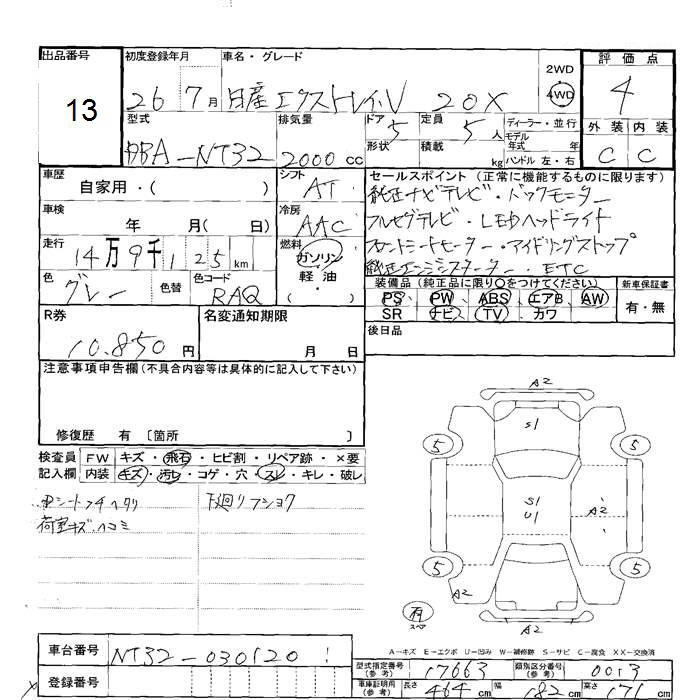 出品番号 13
初度登録年月 26 7月
車名・グレード 日産エクストレイル 20X
2WD 4WD
評価点 4
外装 C 内装 C
型式 DBA-NT32
排気量 2000 cc
ドア 5 形状
定員 5人 積載 kg
ディーラー・並行
モデル年式 年
ハンドル 左・右
車歴 自家用・( )
シフト AT
セールスポイント (正常に機能するものに限ります)
純正ナビテレビ・バックモニター
フルセグテレビ・LEDヘッドライト
フロントシートヒーター・アイドリングストップ
純正エンジンスターター・ETC
車検 年 月( 日)
冷房 AAC
走行 14万9千125km
燃料 ガソリン 軽油 ・( )
色 グレー 色替
色コード RAQ
装備品 (純正品に限り○をつけてください)
PS PW ABS エアB AW
SR ナビ TV カワ
新車保証書 有・無
R券 10.850円
名変通知期限 月 日
後日品
注意事項申告欄(不具合内容等は具体的に記入して下さい)
修復歴 有 〔箇所 〕
検査員記入欄
FW キズ・飛石・ヒビ割・リペア跡・×要
内装 キズ・汚レ・コゲ・穴・スレ・キレ・破レ
中シートフチヘタリ
荷室キズ・ヘコミ
下廻リフショク
A2
S1
5 5
S1
U1
A2
5 5
A2
A2
有 スペア
A-キズ E-エクボ U-凹み W-補修跡 S-サビ C-腐食 XX-交換済
車台番号 NT32-030120
登録番号
型式指定番号(参考) 17663
類別区分番号(参考) 0013
車庫証明用(参考) 長さ 464cm 幅 182cm 高さ 171cm